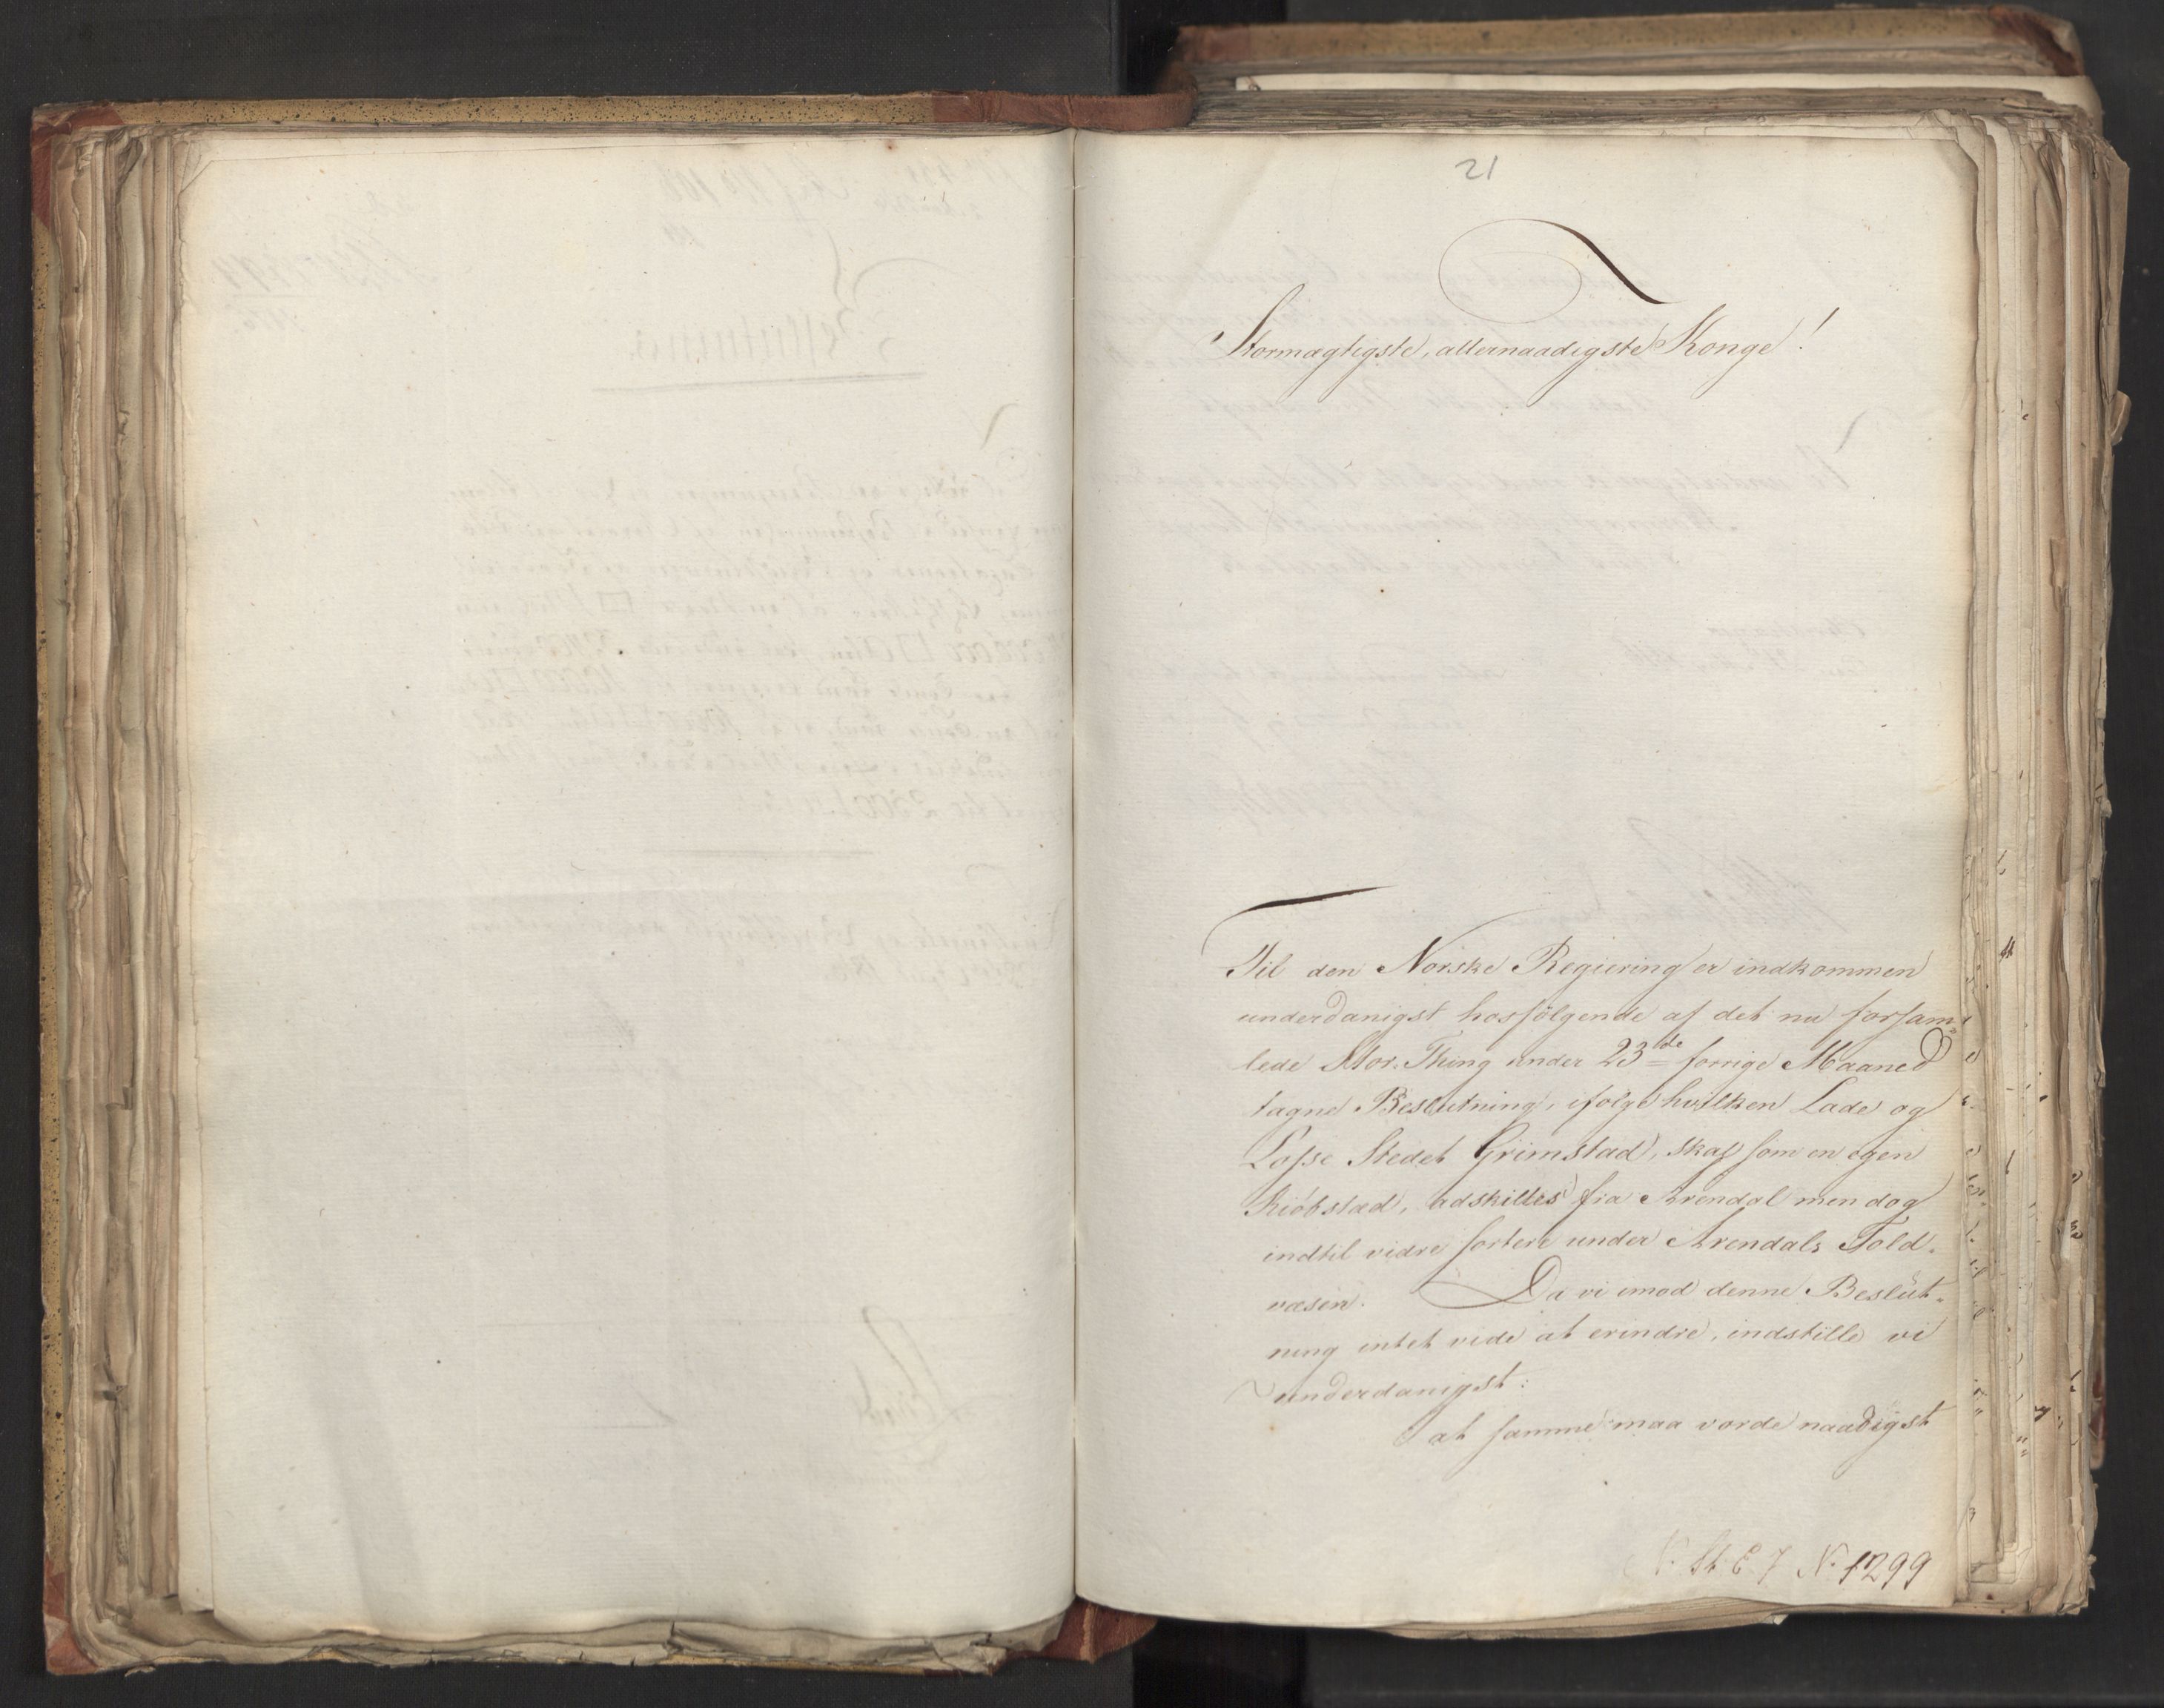 21
Stormægtigste, allernaadigste Konge!
Til den Norske Regiering er indkommen
underdanigst hosfølgende af det nu forsam-
lede Stor-Thing under 23de forrige Maaned
tagne Beslutning, ifølge hvilken Lade og
Losse Stedet Grimstad, skal som en egen
Kiøbstæd, adskilles fra Arendal men dog
indtil vidre sortere under Arendals Told-
væsen. Da vi imod denne Beslut-
ning intet vide at erindre, indstille vi
underdanigst:
at samme maa vorde naadigst
N. St. E. J N. 1299